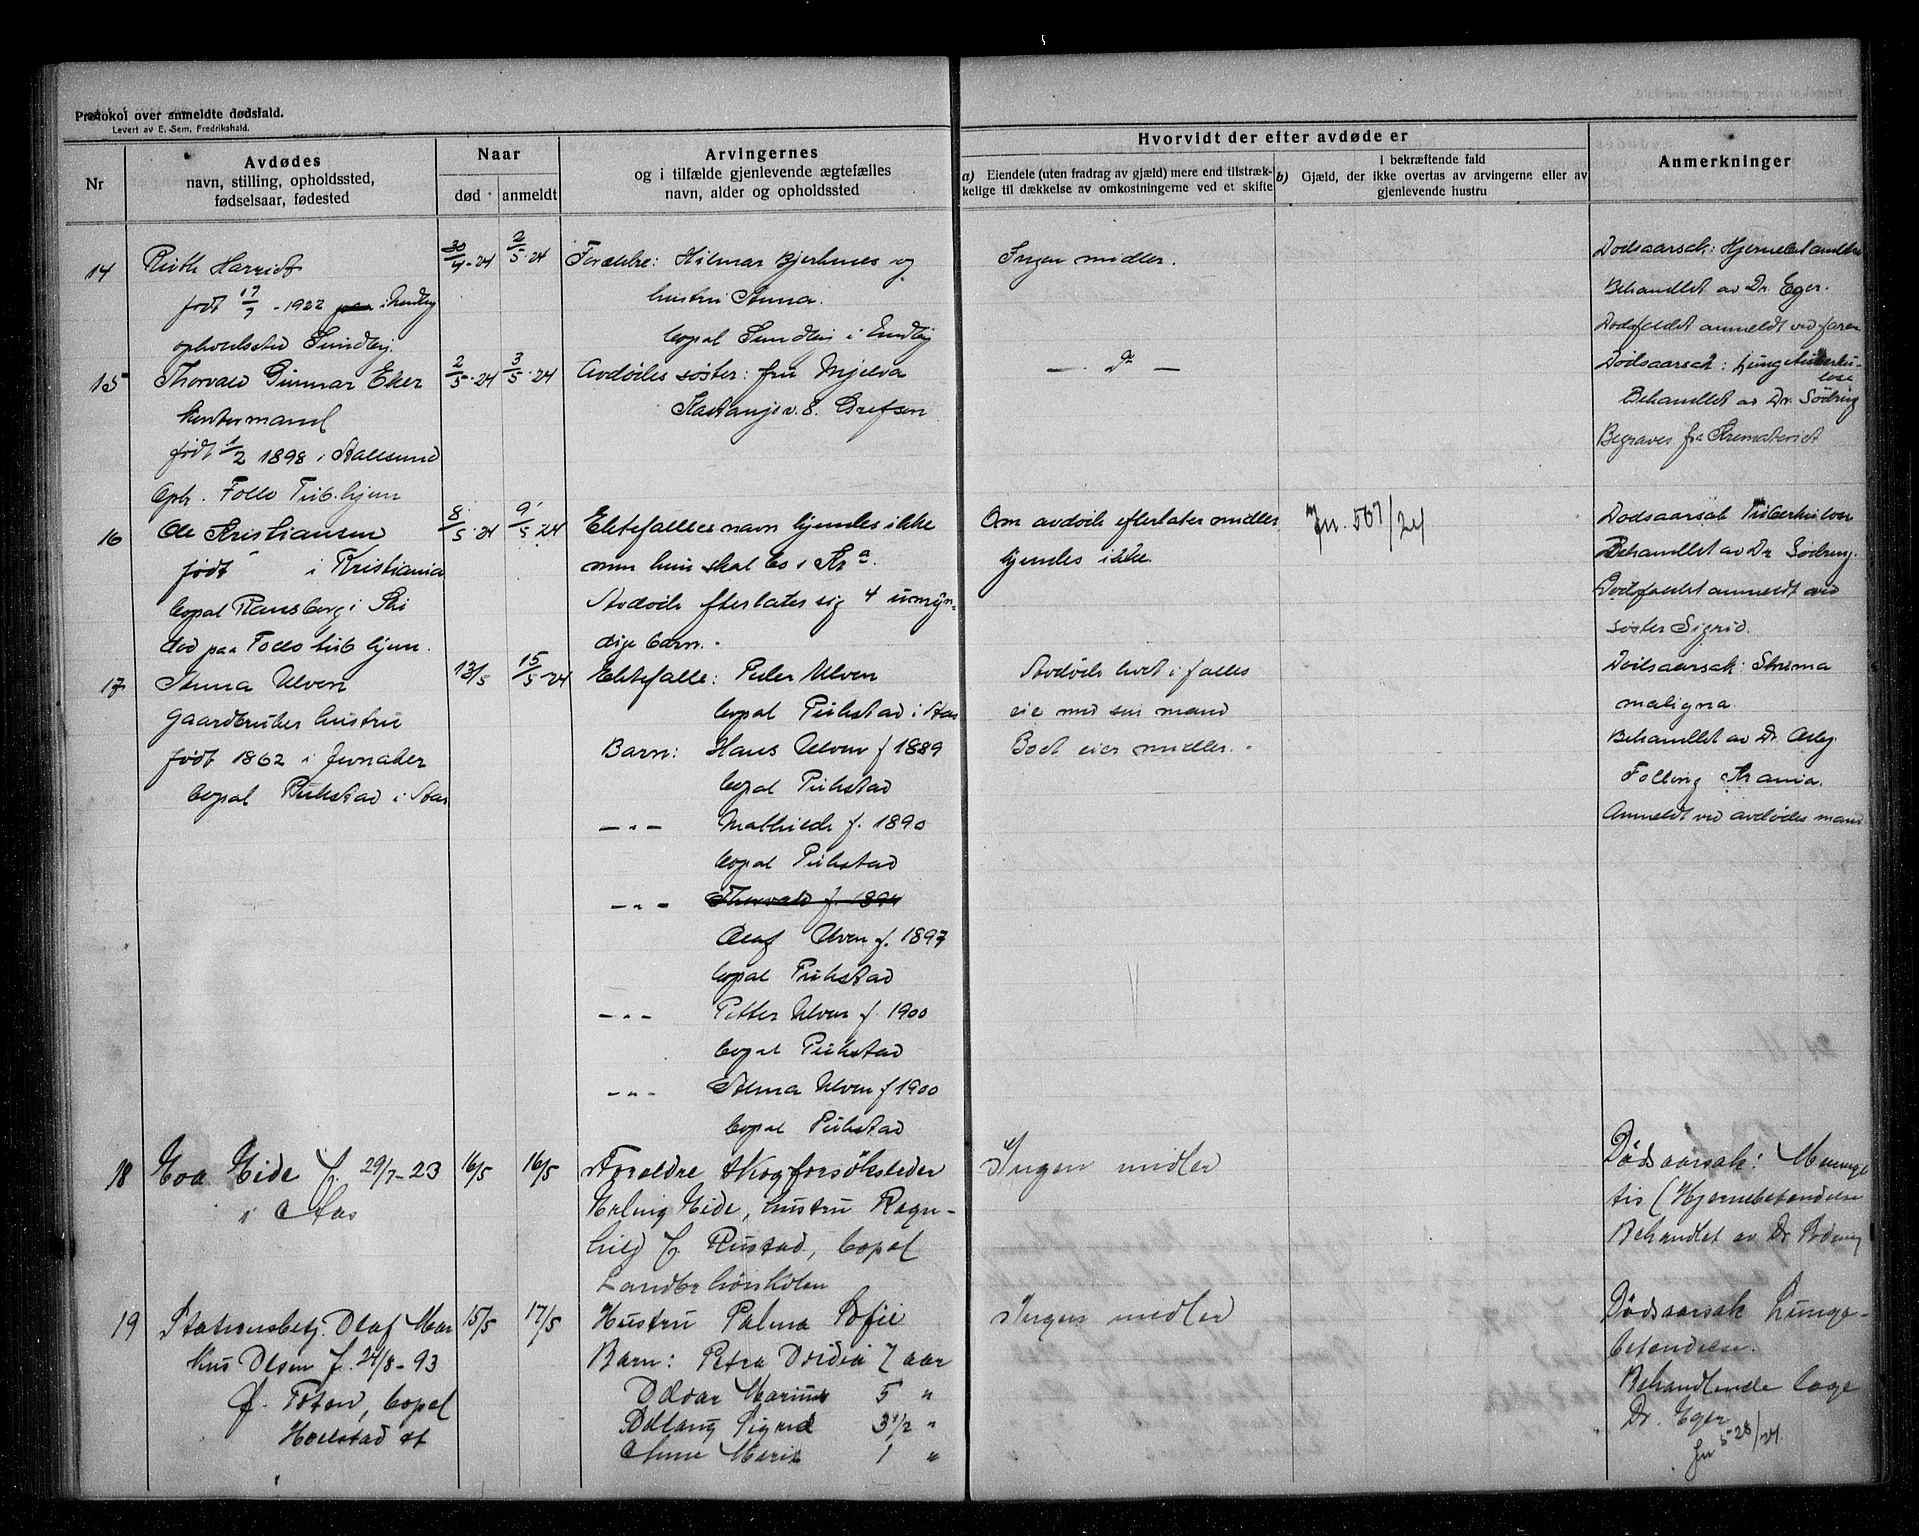 Protokol over anmeldte dødsfald.
Levert av E. Sem, Fredrikshald.
Nr
Avdødes
navn, stilling, opholdssted,
fødselsaar, fødested
Naar
død
anmeldt
Arvingernes
og i tilfælde gjenlevende ægtefælles
navn, alder og opholdssted
Hvorvidt der efter avdøde er
a) Eiendele (uten fradrag av gjæld) mere end tilstræk-
kelige til dækkelse av omkostningerne ved et skifte
b) Gjæld, der i bekræftende fald
ikke overtas av arvingerne eller av
gjenlevende hustru
Anmerkninger
14
Ruth Harriet
født 17/7 - 1922 i
opholdssted Sundby.
30/4-24
2/5-24
Forældre: Hilmar Bjerknes og
hustru Anna.
bopæl Sundby i
Ingen midler.
Dødsaarsak:
Behandlet av Dr. Eger.
Dødsfaldet anmeldt ved faren
15
Thorvald Gunnar Eker
kontormand
født 1/2 1898 i Aalesund
Oph. Follo Tub.hjem
2/5-24
3/5-24
Avdødes søster: fru Mjelva
Kastanjev. 8. Grefsen
Dødsaarsak: Lungetuberku-
lose
Behandlet av Dr. Sødring
Begraves fra Krematoriet
16
Ole Kristiansen
født " i Kristiania
bopæl Ransberg i Ski
død paa Follo tub hjem.
8/5-24
9/5-24
Ektefælles navn kjendes ikke
men hun skal bo i Kr.a.
Avdøde efterlater sig 4 umyn-
dige barn.
Om avdøde efterlater midler
kjendes ikke.
Jn. 567/24
Dødsaarsak Tuberkulose
Behandlet av Dr Sødring.
Dødsfaldet anmeldt ved
søster Sigrid.
17
Anna Ulven
Gaardbruker hustru
født 1862 i Jevnaker
bopæl i Aas
13/5
15/5-24
Ektefælle: Peder Ulven
bopæl i Aas
Barn: Hans Ulven f 1889
bopæl
-"- Mathilde f. 1890
bopæl
-"- Thorvald f. 1894
Olaf Ulven f. 1897
bopæl
-"- Petter Ulven f. 1900
bopæl
-"- Alma Ulven f 1900
bopæl
Avdøde levet i fælles
eie med sin mand
Boet eier midler.
Dødsaarsak: Struma
maligna.
Behandlet av Dr.
Krania.
Anmeldt ved avdødes mand
18
Eva Eide f. 29/7-23
i Aas
16/5
16/5
Forældre skogforsøksleder
Erling Eide, hustru Ragn-
hild f. Rustad, bopæl
Landbrhøiskolen
Ingen midler
Dødsaarsak: Meninge
tis (Hjernebetændelse
Behandlet av Dr.
19
Stationsbetj. Olaf Mar
kus Olsen f. 24/8-93
f. Toten, bopæl
Holstad st
15/5
17/5
Hustru Palma Sofie
Barn: Petra Dordia 7 aar
Oddvar Marius 5 "
Odlaug Sigrid 3 1/2 "
Anne Marie 1 "
Ingen midler
Dødsaarsak Lunge-
betændelse.
Behandlende læge
Dr. Eger
Jn 528/24.